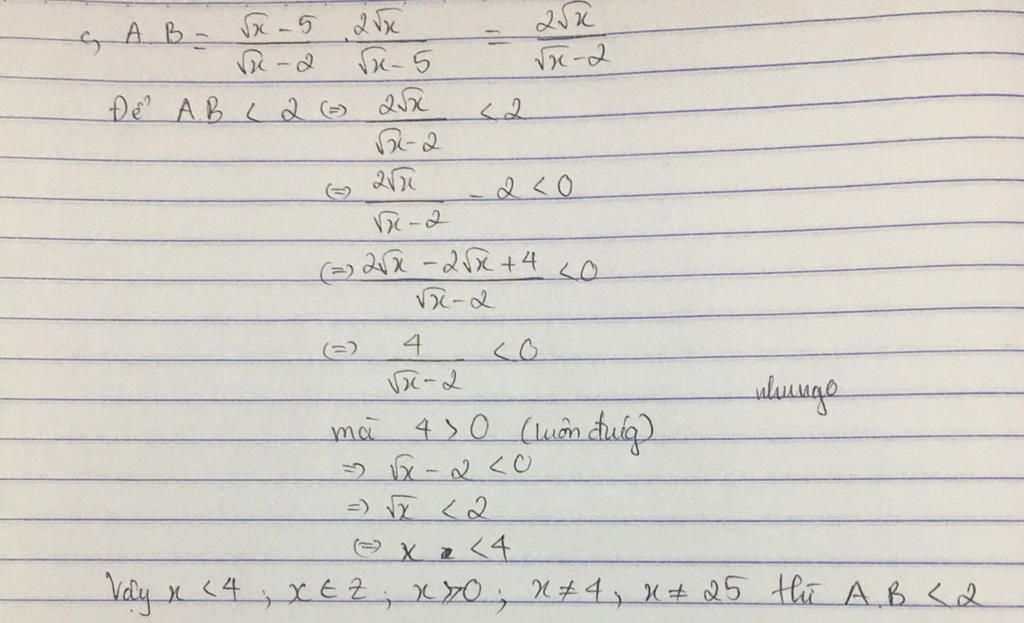 c, A.B = \frac{\sqrt{x}-5}{\sqrt{x}-2} . \frac{2\sqrt{x}}{\sqrt{x}-5} = \frac{2\sqrt{x}}{\sqrt{x}-2}
Để A.B < 2 (=) \frac{2\sqrt{x}}{\sqrt{x}-2} < 2
(=) \frac{2\sqrt{x}}{\sqrt{x}-2} - 2 < 0
(=) \frac{2\sqrt{x}-2\sqrt{x}+4}{\sqrt{x}-2} < 0
(=) \frac{4}{\sqrt{x}-2} < 0
nhungo
mà 4 > 0 (luôn đúng)
=) \sqrt{x} - 2 < 0
=) \sqrt{x} < 2
(=) x < 4
Vậy x < 4 ; x ∈ Z ; x ≥ 0 ; x ≠ 4 , x ≠ 25 thì A.B < 2